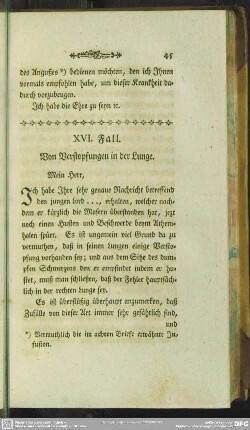 45
des Anguſſes *) bedienen möchten, den ich Ihnen
vormals empfohlen habe, um dieſer Krankheit da-
durch vorzubeugen.
Ich habe die Ehre zu ſeyn ꝛc.
XVI. Fall.
Von Verſtopfungen in der Lunge.
Mein Herr,
Ich habe Ihre ſehr genaue Nachricht betreffend
den jungen Lord ..., erhalten, welcher nach-
dem er kürzlich die Maſern überſtanden hat, jezt
noch einen Huſten und Beſchwerde beym Athem-
holen ſpürt. Es iſt ungemein viel Grund da zu
vermuthen, daß in ſeinen Lungen einige Verſto-
pfung vorhanden ſey; und aus dem Sitze des dum-
pfen Schmerzens den er empfindet indem er hu-
ſtet, muß man ſchließen, daß der Fehler hauptſäch-
lich in der rechten Lunge ſey.
Es iſt überflüßig überhaupt anzumerken, daß
Zufälle von dieſer Art immer ſehr gefährlich ſind,
und
*) Vermuthlich die im achten Briefe erwähnte In-
fuſion.